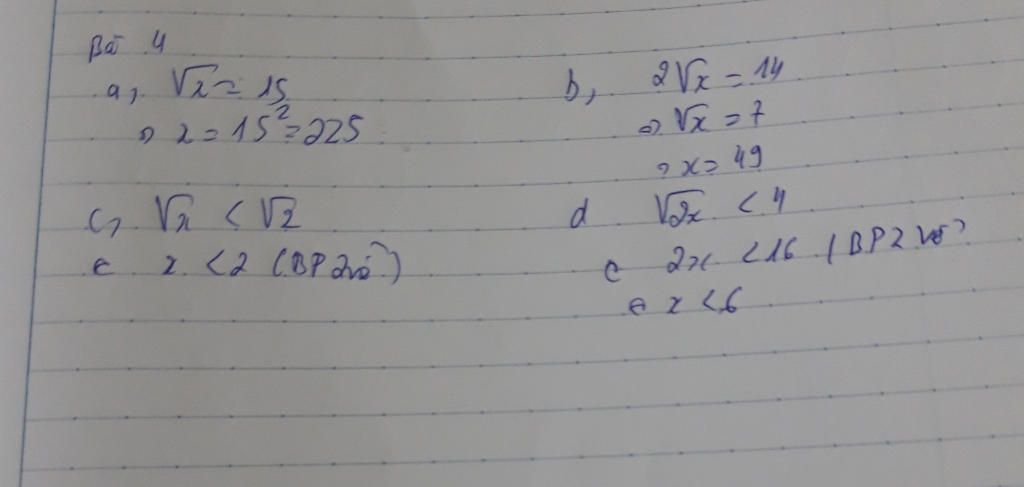 Bài 4
a, √x = 15
⇒ x = 15² = 225
b, 2√x = 14
⇒ √x = 7
⇒ x = 49
c, √x < √2
x < 2 (BP 2 vế)
d √2x < 4
2x < 16 (BP 2 vế)
x < 6